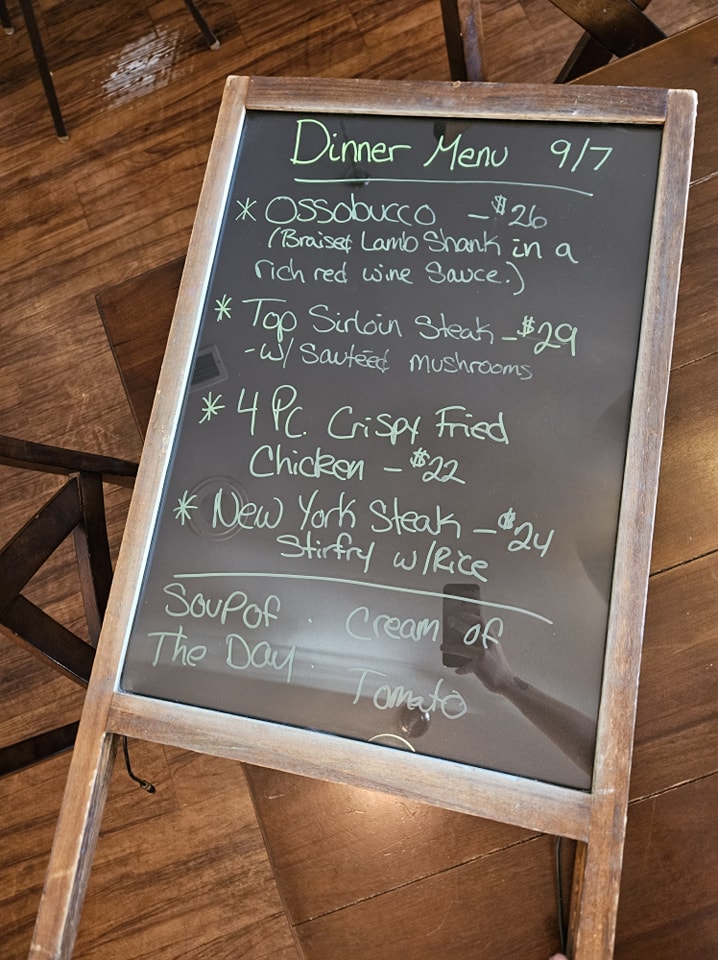 Dinner Menu 9/7
* Ossobucco - $26
(Braised Lamb Shank in a
rich red wine Sauce.)
* Top Sirloin Steak - $29
- w/ Sauteéd mushrooms
* 4 Pc. Crispy Fried
Chicken - $22
* New York Steak - $24
Stirfry w/Rice
Soup of
The Day
Cream of
Tomato